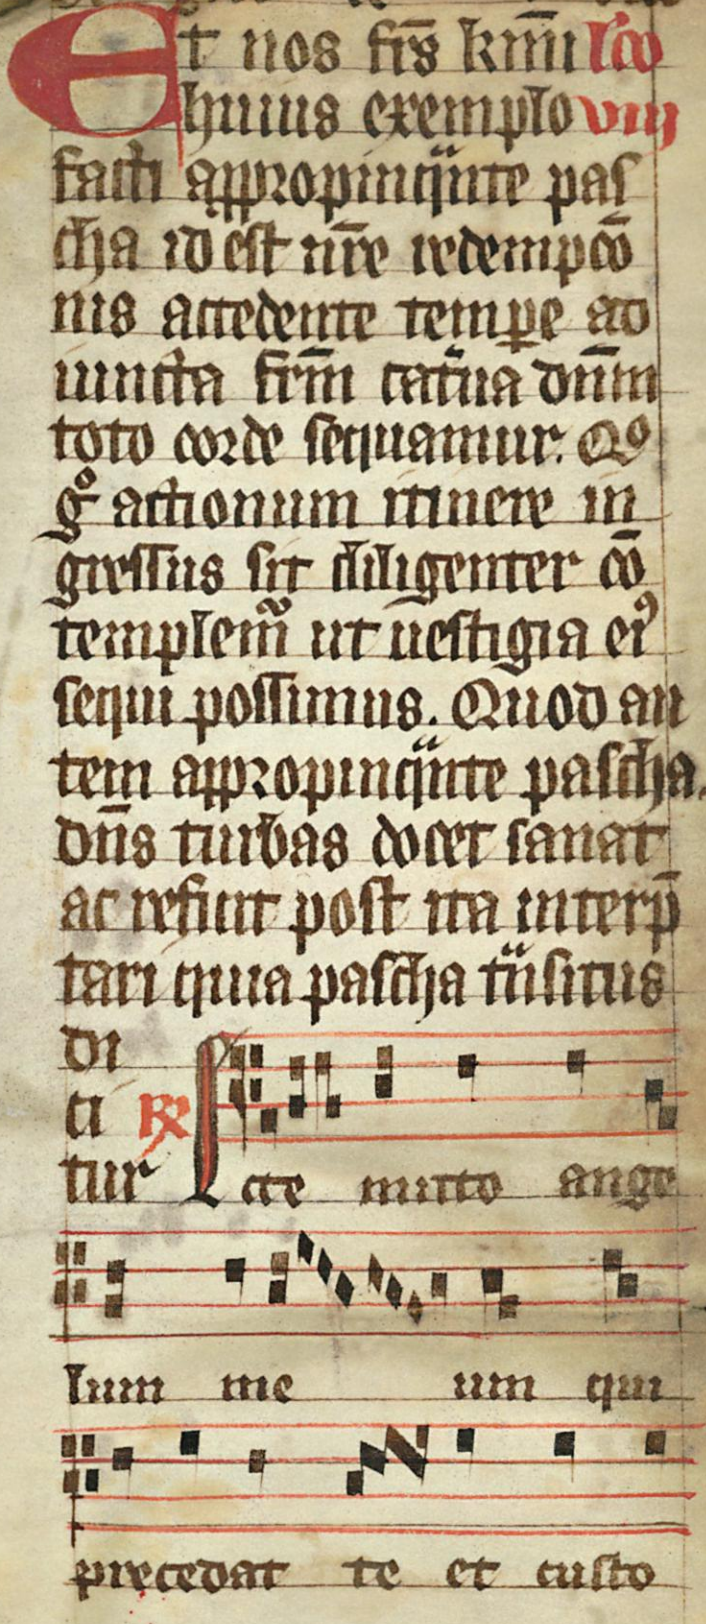 Et nos fr̄s kmī lc̄o
huius exemplo viij
facti appropinq̈nte pas
cha id est nr̄e redempcō
nis accedente temp̱e ad
iuncta frm̄ cat̾ua dn̄m
toto corde sequamur. Qͦ
gͦ actionum itinere in
gressus sit diligenter cō
templem̃ ut uestigia ei⁹
sequi possimus. Quod au
tem appropinq̈nte pascha.
dn̄s turbas docet sanat
ac refiuit post ita interp̄
tari quia pascha tn̈situs
di
ci ℟
tur Ecce mitto ange
lum me um qui
precedat te et custo